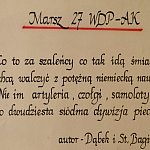 Marsz 27 WDP-AK
Co to za szaleńcy co tak idą śmia
chcą walczyć z potężną niemiecką nau
Nie im artyleria, czołgi, samoloty
to dwudziesta siódma dywizja piec
autor - Dąbek i St. Bagi